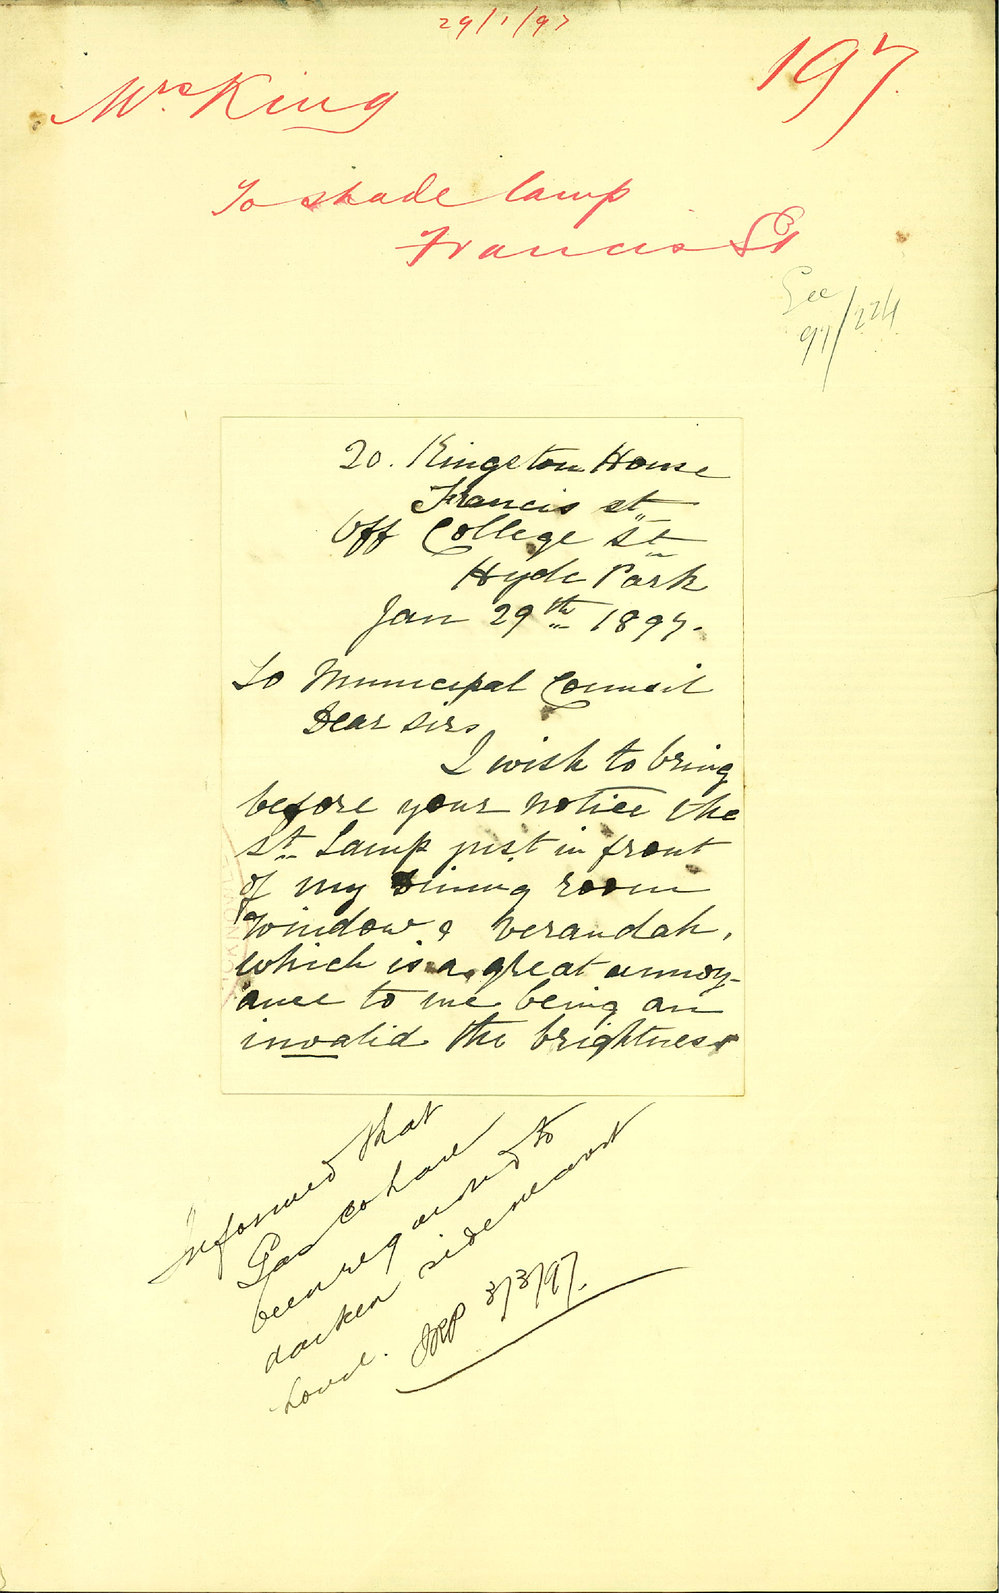 29/1/97
197.
Mrs King
To shade lamp
Francis St
See
97/224
20. Kingston House
Francis st
Off College st
Hyde Park
Jan 29th 1897.
To Municipal Council
Dear sirs
I wish to bring
before your notice the
st Lamp just in front
of my Dining room
window & verandah,
which is a great annoy-
ance to me being an
invalid the brightness
Informed that
Gas Co have
been requested to
darken side nearest
house. 3/3/97.